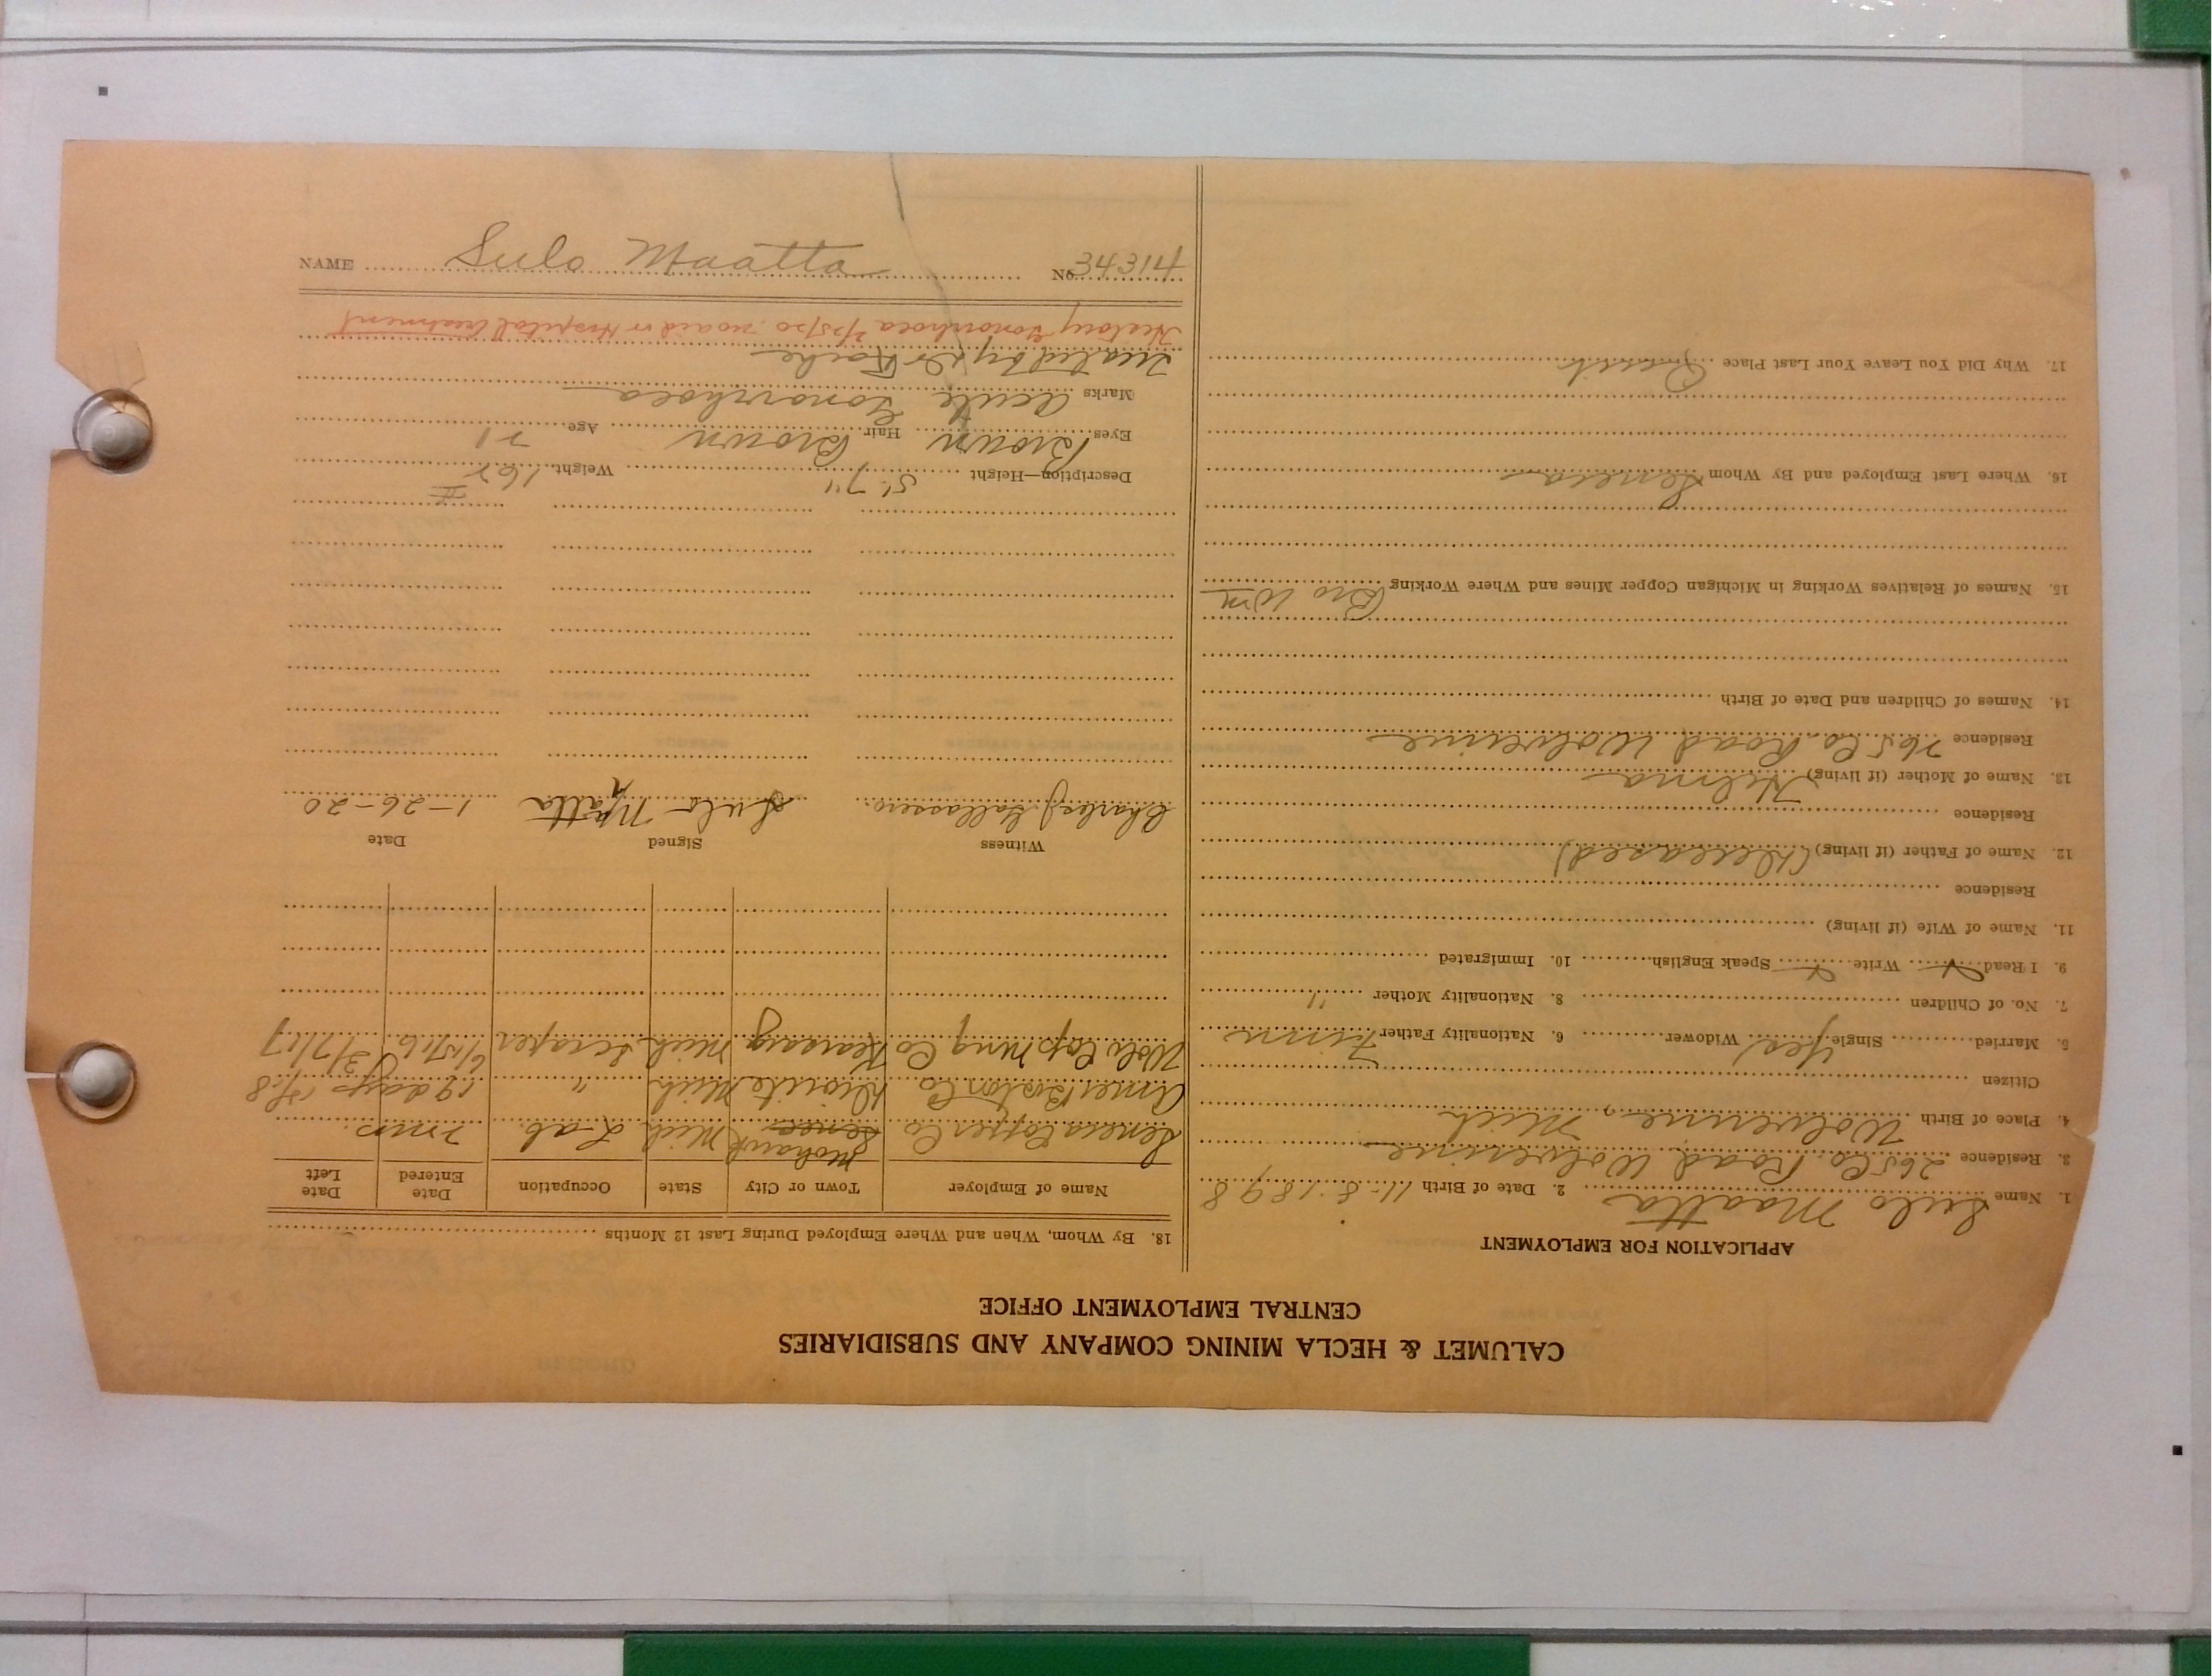 CALUMET & HECLA MINING COMPANY AND SUBSIDIARIES
CENTRAL EMPLOYMENT OFFICE
APPLICATION FOR EMPLOYMENT
1. Name Sulo Maatta 2. Date of Birth 11-8-1898
3. Residence 265 Co. Road Wolverine
4. Place of Birth Wolverine, Mich
Citizen
5. Married Single Yes Widower 6. Nationality Father Finn
7. No. of Children 8. Nationality Mother "
9. I Read Write Speak English 10. Immigrated
11. Name of Wife (if living)
Residence
12. Name of Father (if living) (Deceased)
Residence
13. Name of Mother (if living) Helma
Residence 265 Co. Road Wolverine
14. Names of Children and Date of Birth
15. Names of Relatives Working in Michigan Copper Mines and Where Working Bro Wm
16. Where Last Employed and By Whom Seneca
17. Why Did You Leave Your Last Place Quit
18. By Whom, When and Where Employed During Last 12 Months
Name of Employer Town or City State Occupation Date Entered Date Left
Seneca Copper Co Seneca Mohawk Mich Lab. 2 mos.
Amer Boston Co. Diorite Mich Mich " 19 days
Wolv Cop Mng Co Kearsarg Mich Scraper 6/15/16 3/7/17
Witness Signed Date
Charles J Sulo Matta 1-26-20
Description—Height 5' 7" Weight 162
Eyes Brown Hair Brown Age 21
Marks Acute Gonorrhoea
Treated by Dr Roche
Gonorrhoea no aid or Hospital treatment
NAME Sulo Maatta No. 34314